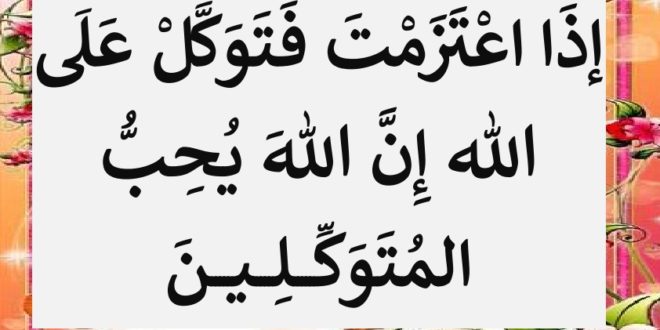 إِذَا اعْتَزَمْتَ فَتَوَكَّلْ عَلَى
الله إِنَّ اللهَ يُحِبُّ
المُتَوَكِّلِينَ